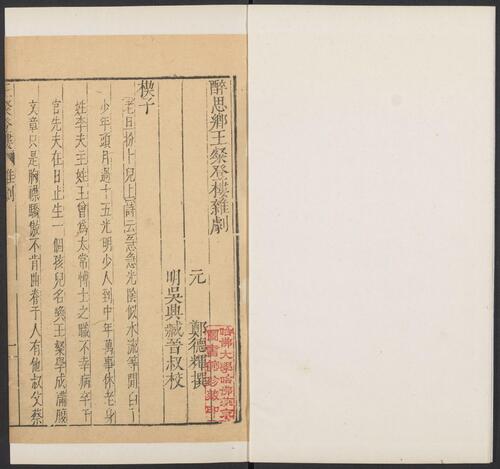 醉思鄉王粲登樓雜劇
元　鄭德輝撰
明吳興臧晉叔校
楔子
老旦扮卜兒上詩云急急光陰似水流等閒白了
少年頭月過十五光明少人到中年萬事休老身
姓李夫主姓王曾為太常博士之職不幸病卒于
官先夫在日止生一個孩兒名喚王粲學成滿腹
文章只是胸襟驕傲不肯曲脊于人有他叔父蔡
王粲登樓　雜劇
一
哈佛大學哈佛燕京
圖書館珍藏印